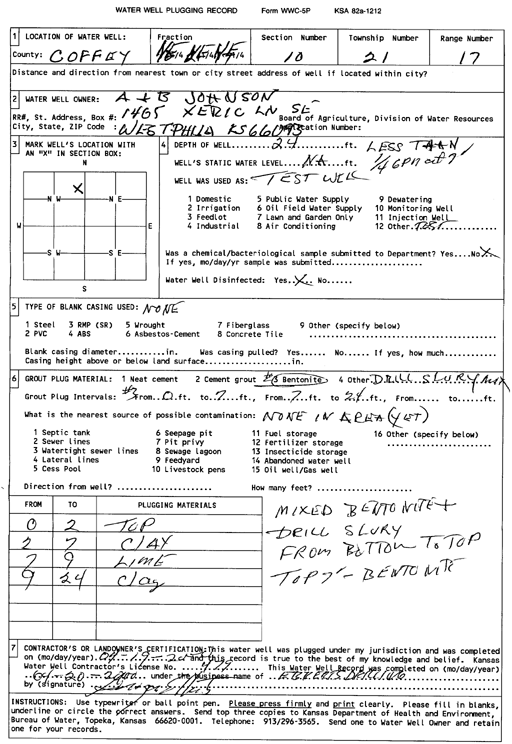 WATER WELL PLUGGING RECORD Form WWC-5P KSA 82a-1212
1 LOCATION OF WATER WELL: Fraction Section Number Township Number Range Number
County: COFFEY 1/4 1/4 1/4 10 21 17
Distance and direction from nearest town or city street address of well if located within city?
2 WATER WELL OWNER: A & B JOHNSON
RR#, St. Address, Box #: 1465 XERIC LN SE Board of Agriculture, Division of Water Resources
City, State, ZIP Code : WESTPHILA KS 66093 Application Number:
3 MARK WELL'S LOCATION WITH AN "X" IN SECTION BOX:
N
X
N W N E
W E
S W S E
S
4 DEPTH OF WELL......24......ft. LESS THAN
WELL'S STATIC WATER LEVEL...NA...ft. 1/4 GPM at 7'
WELL WAS USED AS: TEST WELL
1 Domestic 5 Public Water Supply 9 Dewatering
2 Irrigation 6 Oil Field Water Supply 10 Monitoring Well
3 Feedlot 7 Lawn and Garden Only 11 Injection Well
4 Industrial 8 Air Conditioning 12 Other..Test..
Was a chemical/bacteriological sample submitted to Department? Yes....No.X..
If yes, mo/day/yr sample was submitted..........
Water Well Disinfected: Yes..X.. No......
5 TYPE OF BLANK CASING USED: NONE
1 Steel 3 RMP (SR) 5 Wrought 7 Fiberglass 9 Other (specify below)
2 PVC 4 ABS 6 Asbestos-Cement 8 Concrete Tile
Blank casing diameter..........in. Was casing pulled? Yes...... No...... If yes, how much..........
Casing height above or below land surface..........in.
6 GROUT PLUG MATERIAL: 1 Neat cement 2 Cement grout 3 Bentonite 4 Other DRILL SLURY MIX
Grout Plug Intervals: From..0..ft. to..7..ft., From..7..ft. to..24..ft., From......ft. to......ft.
What is the nearest source of possible contamination: NONE IN AREA (YET)
1 Septic tank 6 Seepage pit 11 Fuel storage 16 Other (specify below)
2 Sewer lines 7 Pit privy 12 Fertilizer storage
3 Watertight sewer lines 8 Sewage lagoon 13 Insecticide storage
4 Lateral lines 9 Feedyard 14 Abandoned water well
5 Cess Pool 10 Livestock pens 15 Oil well/Gas well
Direction from well? .......... How many feet? ..........
FROM TO PLUGGING MATERIALS
0 2 TOP
2 7 CLAY
7 9 LIME
9 24 Clay
MIXED BENTONITE +
DRILL SLURY
FROM BOTTOM TO TOP
TOP 7' - BENTONITE
7 CONTRACTOR'S OR LANDOWNER'S CERTIFICATION: This water well was plugged under my jurisdiction and was completed
on (mo/day/year).04-19-2000 and this record is true to the best of my knowledge and belief. Kansas
Water Well Contractor's License No. This Water Well Record was completed on (mo/day/year)
04-20-2000 under the business name of
by (signature)
INSTRUCTIONS: Use typewriter or ball point pen. Please press firmly and print clearly. Please fill in blanks,
underline or circle the correct answers. Send top three copies to Kansas Department of Health and Environment,
Bureau of Water, Topeka, Kansas 66620-0001. Telephone: 913/296-3565. Send one to Water Well Owner and retain
one for your records.